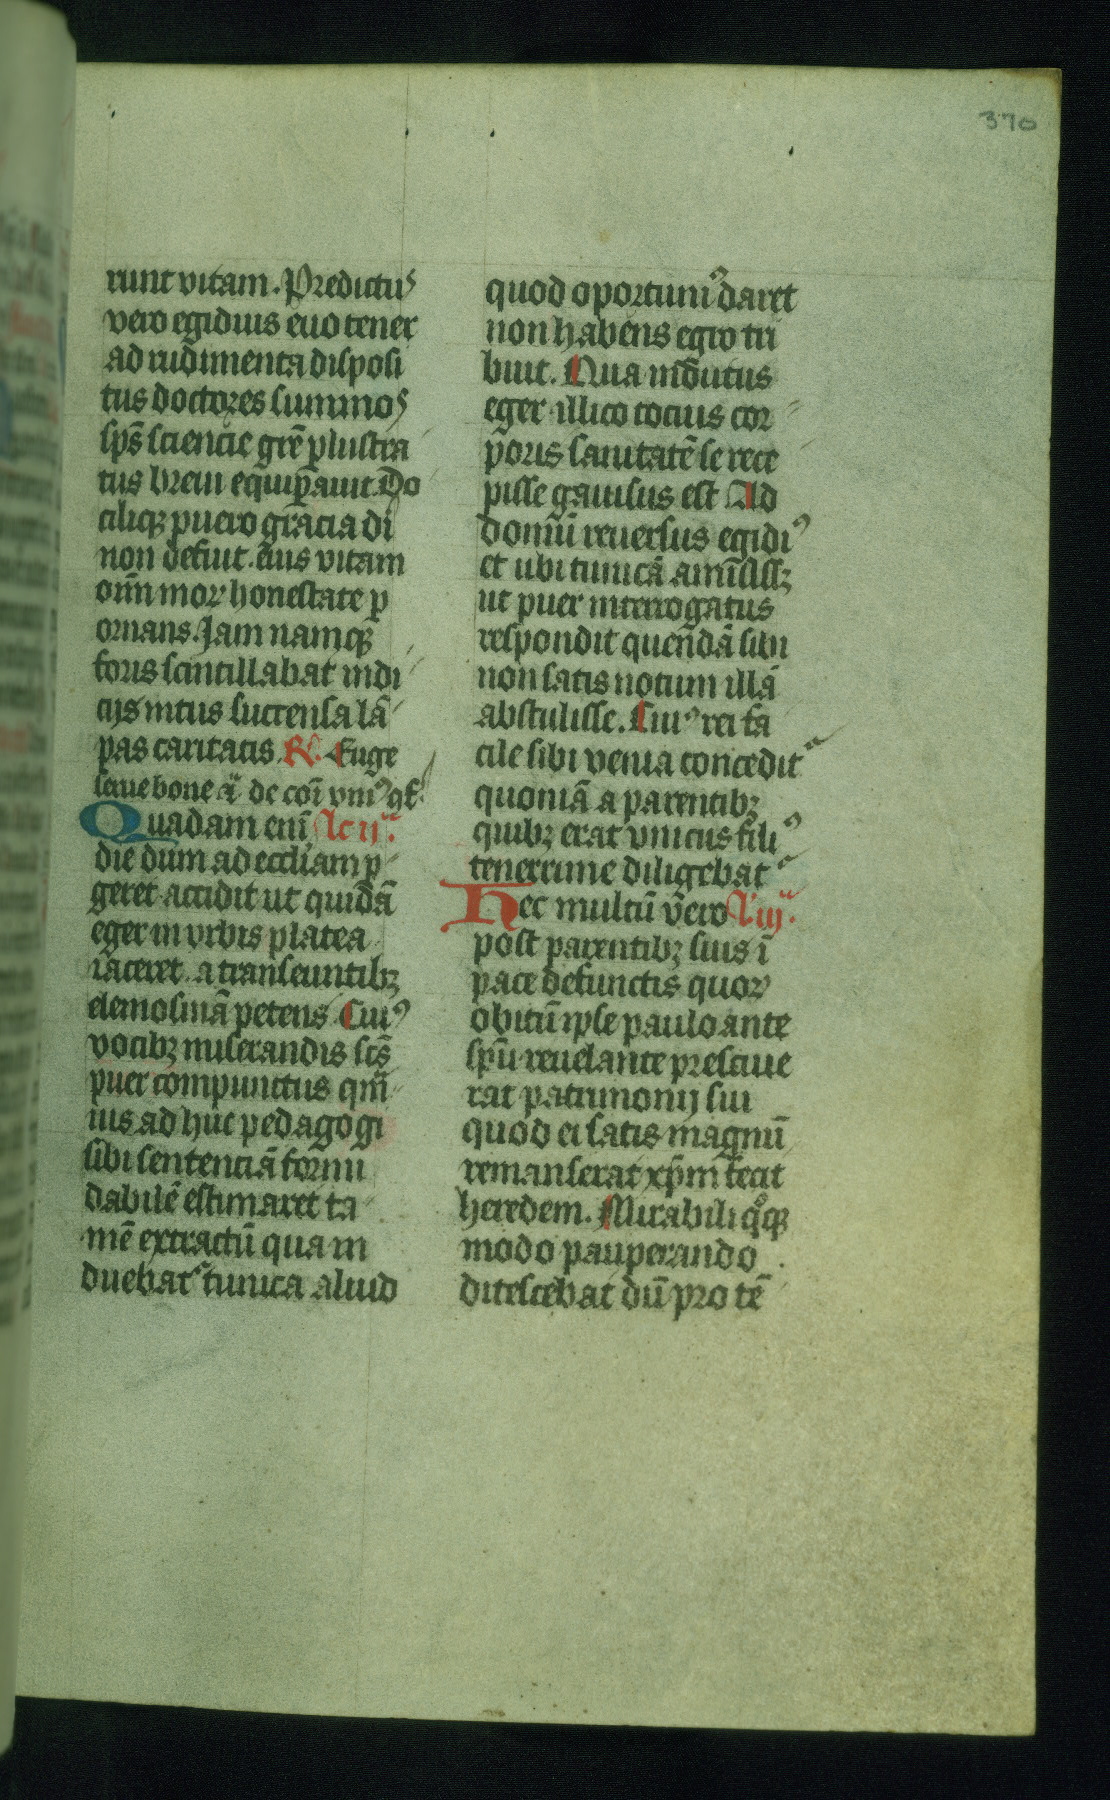 370
runt vitam. Predictus
vero egidius euo tener
ad rudimenta disposi
tus doctores summos
sp̄s sciencie gr̄e p̱lustra
tus breui equip̱auit. Do
cilique puero gr̄acia di
non defuit. eius vitam
om̄i moꝝ honestate p̱
ornans. Jam namqꝫ
foris scintillabat indi
cijs intus succensa lā
pas caritatis. R̸. Euge
serue bone
Quadam eni᷑ Lc ijª.
die dum ad eccl̄iam p̱
geret accidit ut quidā
eger in vrbis platea
iaceret a transeuntibꝫ
elemosinā petens. Cuiꝰ
vocibꝫ miserandis sc̄s
puer compunctus qm̄
ius ad huc pedagogi
sibi sentenciā formi
dabilē estimaret ta
mē extractū qua in
duebat᷑ tunica aliud
quod oportuniꝰ daret
non habens egro tri
buit. Qua indutus
eger illico tocius cor
poris sanitatē se rece
pisse gauisus est Ad
domū reuersus egidiꝰ
et ubi tunicā amisissꝫ
ut puer interrogatus
respondit quendā sibi
non satis notum illā
abstulisse. Cuiꝰ rei fa
cile sibi venia concedit᷑
quoniā a parentibꝫ
quibꝫ erat vnicus filiꝰ
tenerrime diligebat᷑
Nec multū v̄ero L. iijª.
post parentibꝫ suis ī
pace defunctis quoꝝ
obitū ip̱se paulo ante
sp̄u reuelante presciue
rat patrimonij sui
quod ei satis magnū
remanserat xp̄m fecit
heredem. Mirabili qͦqꝫ
modo pauperando
ditescebat dū pro tē